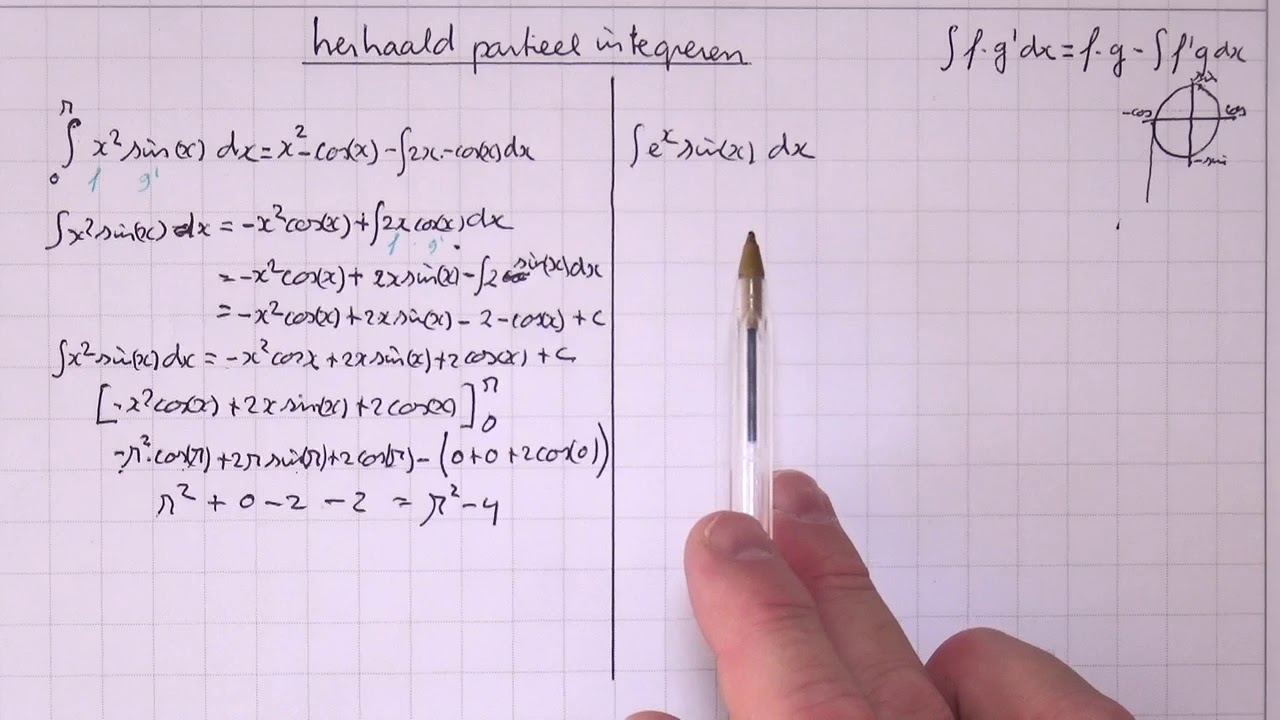 herhaald partieel integreren
∫ f·g' dx = f·g - ∫ f'g dx
sin
-cos cos
-sin
π
∫ x² sin(x) dx = x²·-cos(x) - ∫2x·-cos(x) dx
0 f g'
∫x² sin(x) dx = -x² cos(x) + ∫2x cos(x) dx
f g'
= -x² cos(x) + 2x sin(x) - ∫2 sin(x) dx
= -x² cos(x) + 2x sin(x) - 2·-cos(x) + C
∫x² sin(x) dx = -x² cos x + 2x sin(x) + 2cos(x) + C
[-x² cos(x) + 2x sin(x) + 2cos(x)]₀^π
-π²·cos(π) + 2π sin(π) + 2cos(π) - (0+0+2cos(0))
π² + 0 - 2 - 2 = π² - 4
∫eˣ sin(x) dx